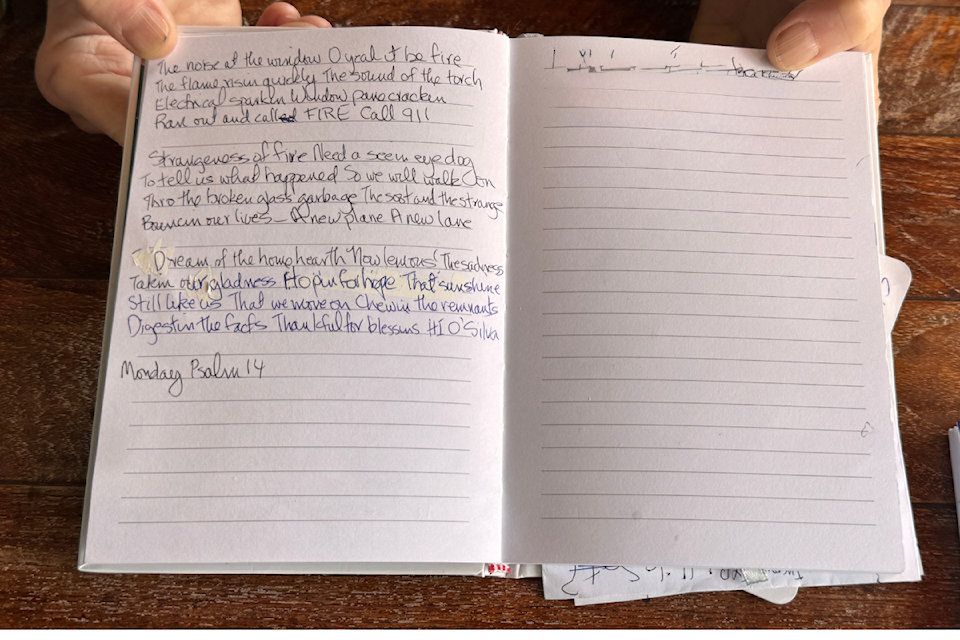 The noise at the window O yeal it be fire
The flame risin quickly The sound of the torch
Electrical sparken Window pane cracken
Ran out and called FIRE Call 911
Strangeness of fire Need a seem eye dog
To tell us what happened So we will walk on
Thro the broken glass garbage The soot and the strange
Bouncin our lives – A new plane A new lane
Dream of the home hearth Now lenrous The sadness
Taken our gladness Hopin for hope That sunshine
Still like us That we move on Chewin the remnants
Digestin the facts Thankful for blessins HI O'Silva
Monday Psalm 14